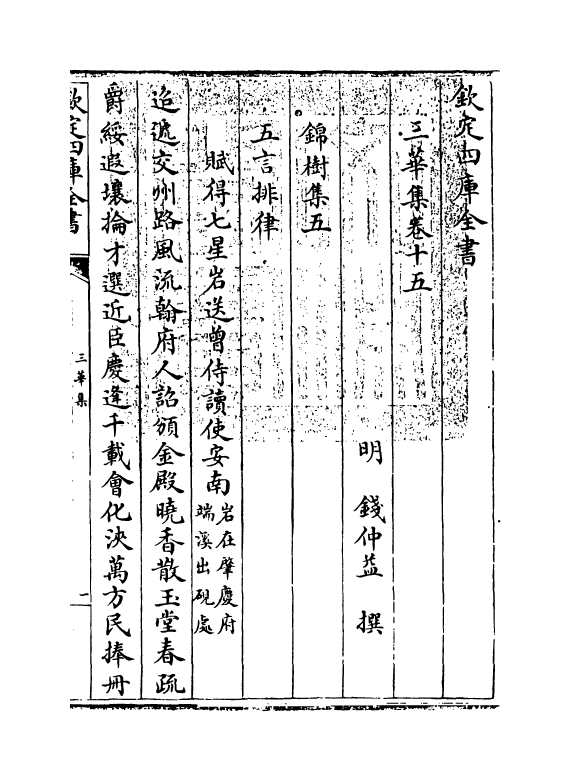 欽定四庫全書
三華集卷十五
明 錢仲益 撰
錦樹集五
五言排律
賦得七星岩送曾侍讀使安南岩在肇慶府端溪出硯處
迢遞交州路風流翰府人詔頒金殿曉香散玉堂春疏
爵綏遐壤掄才選近臣慶逢千載會化浹萬方民捧冊
欽定四庫全書
三華集
一